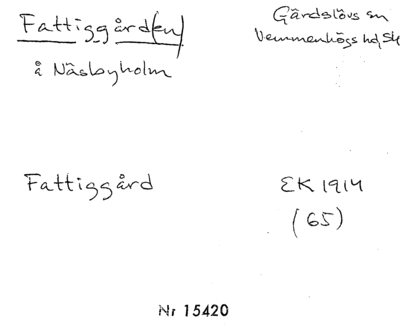 Fattiggård(en)
Gärdslövs sn
å Näsbyholm
Vemmenhögs hd, Sk
Fattiggård
EK 1914
(65)
Nr 15420